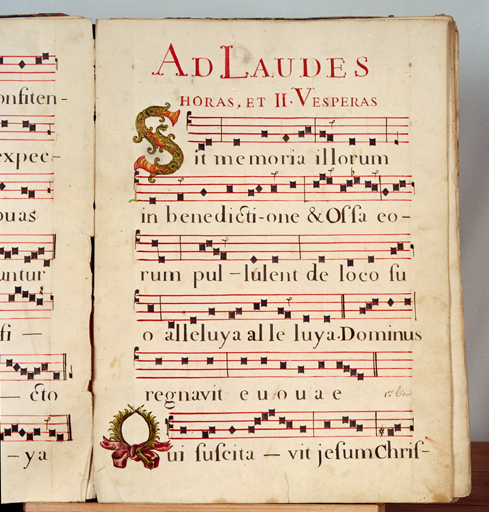 onfiten-
expec-
ouas
untur
fi —
— cto
— ya
AD LAUDES
HORAS, ET II. VESPERAS
Sit memoria illorum
in benedicti-one & Ossa eo-
rum pul-lulent de loco su
o alleluya al le luya. Dominus
regnavit e u o u a e
Qui suscita — vit jesum Chris-